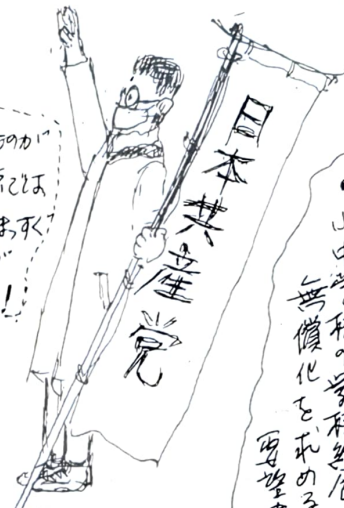 のが
では
まっすぐ
が
!
日本共産党
中学校の学校給
無償化を求める
要望